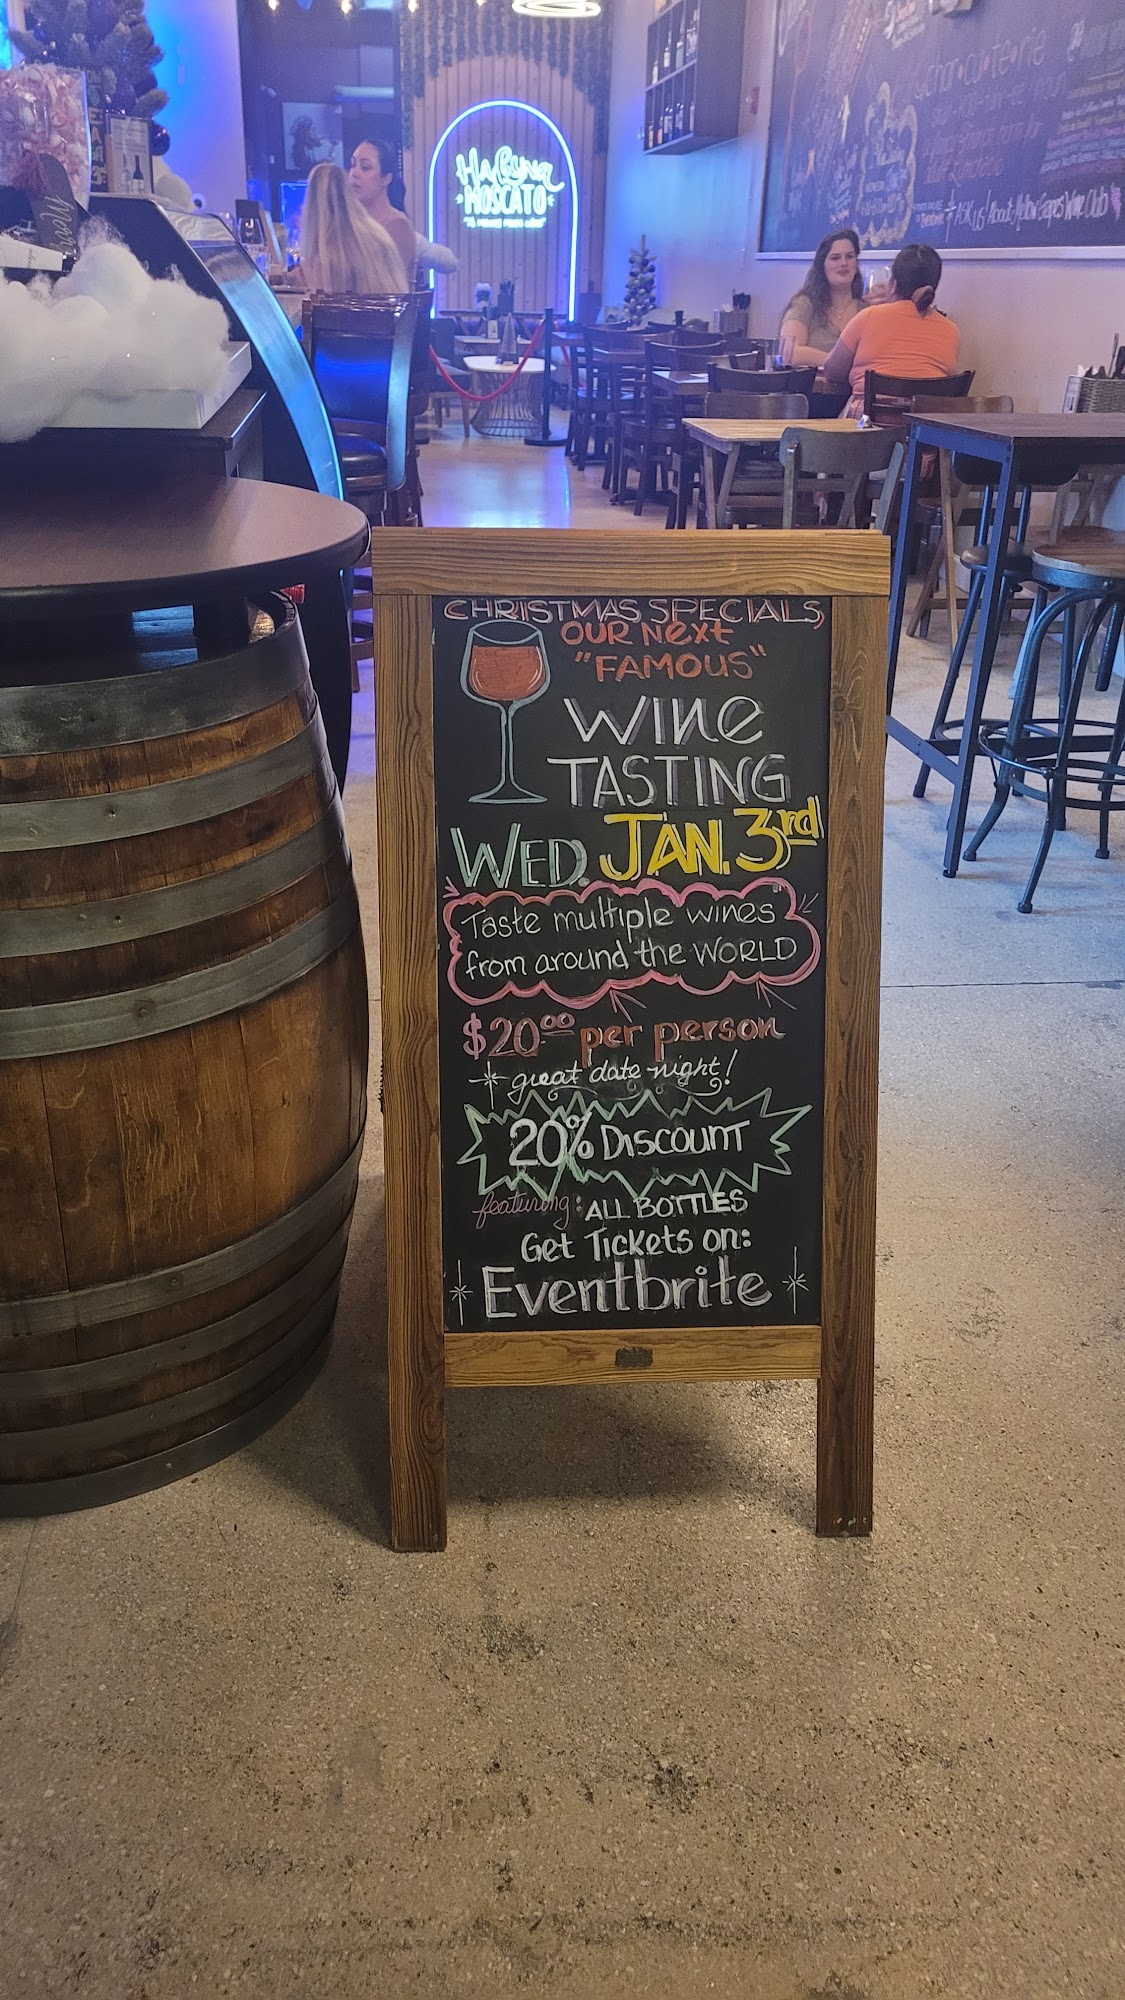 HAKUNA
MOSCATO
char•cu•te•rie
ASK US About: Mellow Grapes Wine Club
CHRISTMAS SPECIALS,
OUR Next
"FAMOUS"
WINE
TASTING
WED. JAN. 3rd
Taste multiple wines
from around the WORLD
$20.00 per person
great date night!
20% DISCOUNT
featuring: ALL BOTTLES
Get Tickets on:
Eventbrite